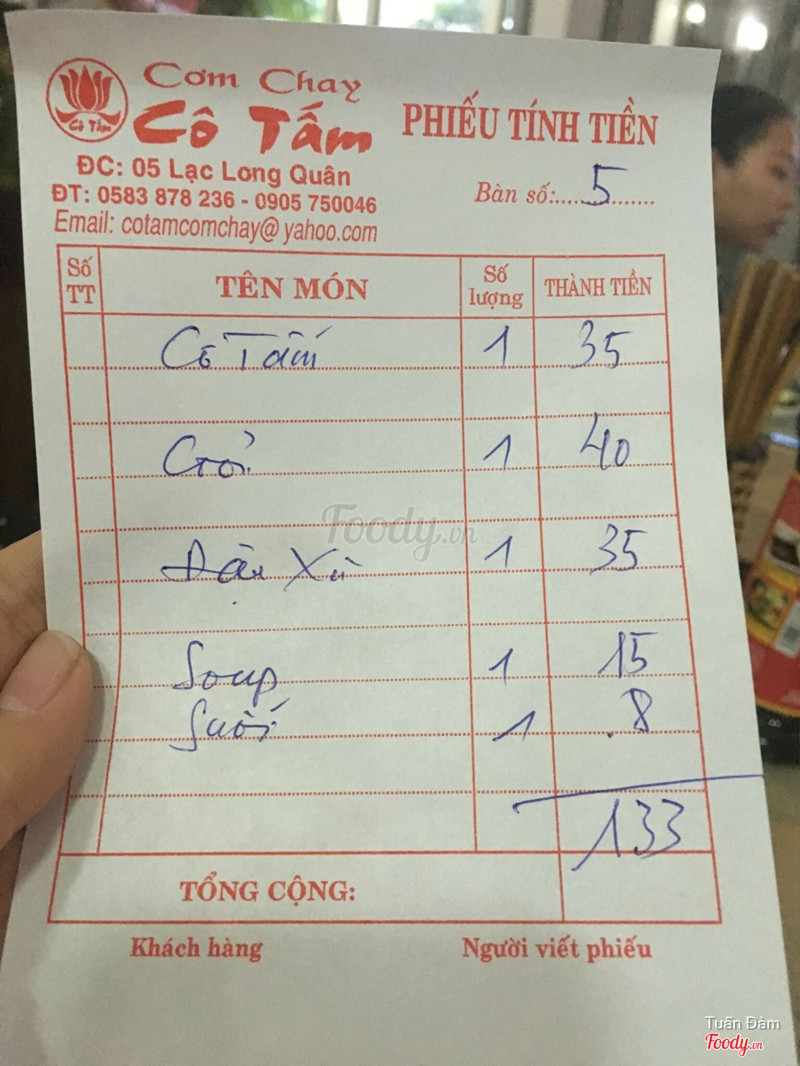 Cơm Chay
Cô Tấm
Cô Tấm
PHIẾU TÍNH TIỀN
ĐC: 05 Lạc Long Quân
ĐT: 0583 878 236 - 0905 750046
Email: cotamcomchay@yahoo.com
Bàn số:....5....
Số TT TÊN MÓN Số lượng THÀNH TIỀN
Cô Tấm 1 35
Gỏi 1 40
Đậu Xù 1 35
Soup 1 15
Suối 1 8
133
TỔNG CỘNG:
Khách hàng Người viết phiếu
Foody.vn
Tuấn Đàm
Foody.vn